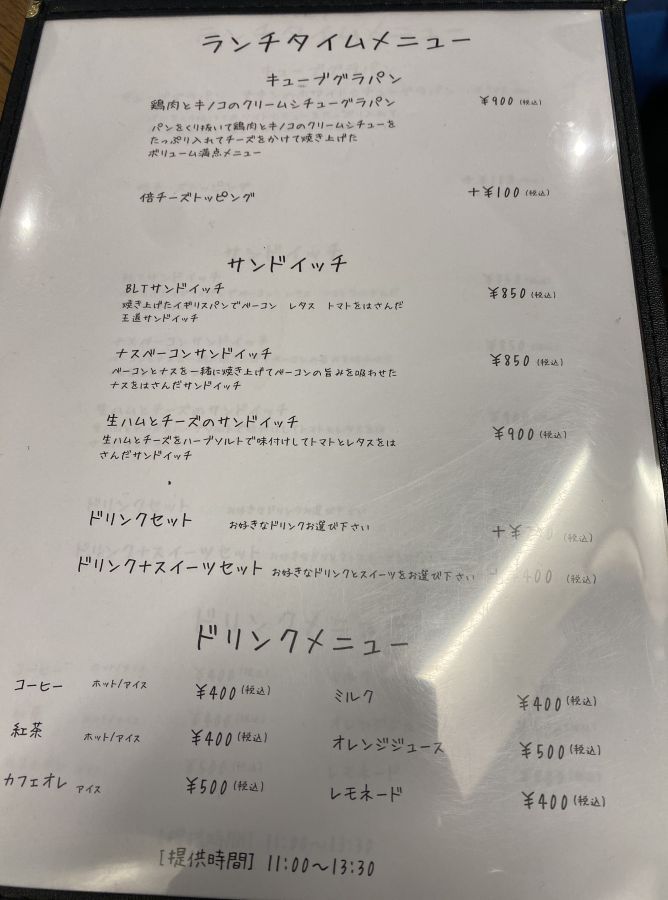 ランチタイムメニュー
キューブグラパン
鶏肉とキノコのクリームシチューグラパン ¥900 (税込)
パンをくり抜いて鶏肉とキノコのクリームシチューを
たっぷり入れてチーズをかけて焼き上げた
ボリューム満点メニュー
倍チーズトッピング +¥100 (税込)
サンドイッチ
BLTサンドイッチ ¥850 (税込)
焼き上げたイギリスパンでベーコン レタス トマトをはさんだ
王道サンドイッチ
ナスベーコンサンドイッチ ¥850 (税込)
ベーコンとナスを一緒に焼き上げてベーコンの旨みを吸わせた
ナスをはさんだサンドイッチ
生ハムとチーズのサンドイッチ ¥900 (税込)
生ハムとチーズをハーブソルトで味付けしてトマトとレタスをは
さんだサンドイッチ
ドリンクセット お好きなドリンクお選び下さい (税込)
ドリンク+スイーツセット お好きなドリンクとスイーツをお選び下さい 400 (税込)
ドリンクメニュー
コーヒー ホット/アイス ¥400 (税込) ミルク ¥400 (税込)
紅茶 ホット/アイス ¥400 (税込) オレンジジュース ¥500 (税込)
カフェオレ アイス ¥500 (税込) レモネード ¥400 (税込)
[提供時間] 11:00〜13:30